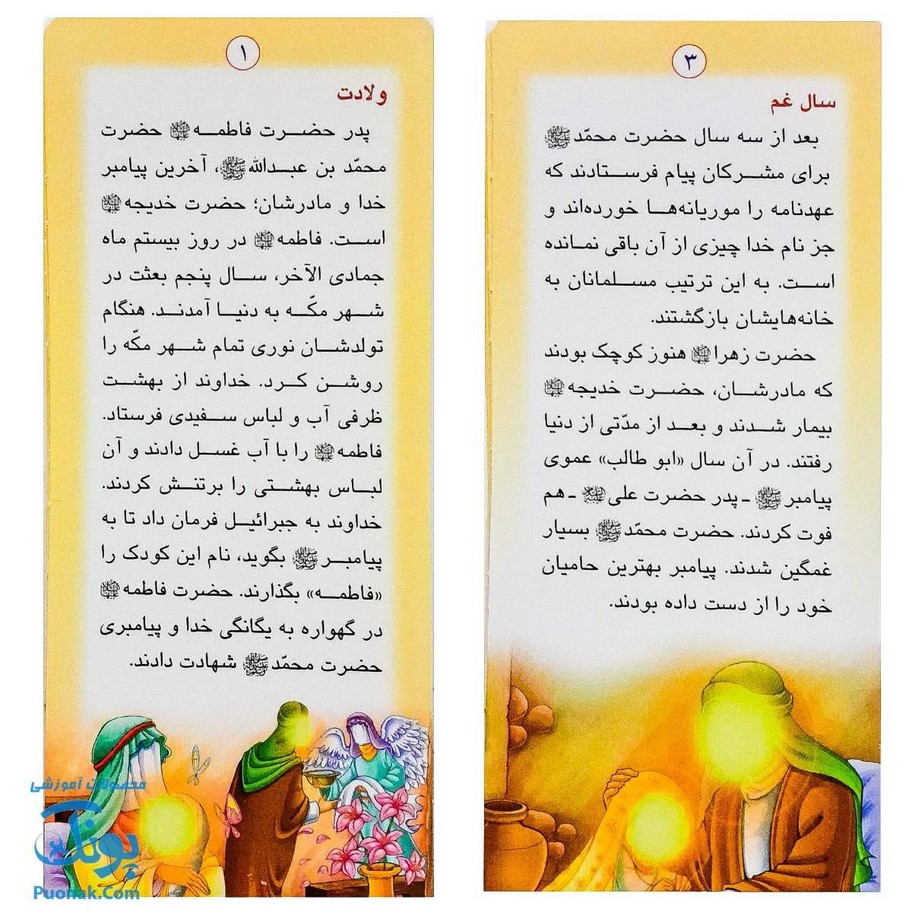 ۱
ولادت
پدر حضرت فاطمه حضرت
محمّد بن عبدالله، آخرین پیامبر
خدا و مادرشان؛ حضرت خدیجه
است. فاطمه در روز بیستم ماه
جمادی الآخر، سال پنجم بعثت در
شهر مکّه به دنیا آمدند. هنگام
تولدشان نوری تمام شهر مکّه را
روشن کرد. خداوند از بهشت
ظرفی آب و لباس سفیدی فرستاد.
فاطمه را با آب غسل دادند و آن
لباس بهشتی را برتنش کردند.
خداوند به جبرائیل فرمان داد تا به
پیامبر بگوید، نام این کودک را
«فاطمه» بگذارند. حضرت فاطمه
در گهواره به یگانگی خدا و پیامبری
حضرت محمّد شهادت دادند.
۳
سال غم
بعد از سه سال حضرت محمّد
برای مشرکان پیام فرستادند که
عهدنامه را موریانه‌ها خورده‌اند و
جز نام خدا چیزی از آن باقی نمانده
است. به این ترتیب مسلمانان به
خانه‌هایشان بازگشتند.
حضرت زهرا هنوز کوچک بودند
که مادرشان، حضرت خدیجه
بیمار شدند و بعد از مدّتی از دنیا
رفتند. در آن سال «ابو طالب» عموی
پیامبر ـ پدر حضرت علی ـ هم
فوت کردند. حضرت محمّد بسیار
غمگین شدند. پیامبر بهترین حامیان
خود را از دست داده بودند.
محصولات آموزشی
پونک
Puonak.Com